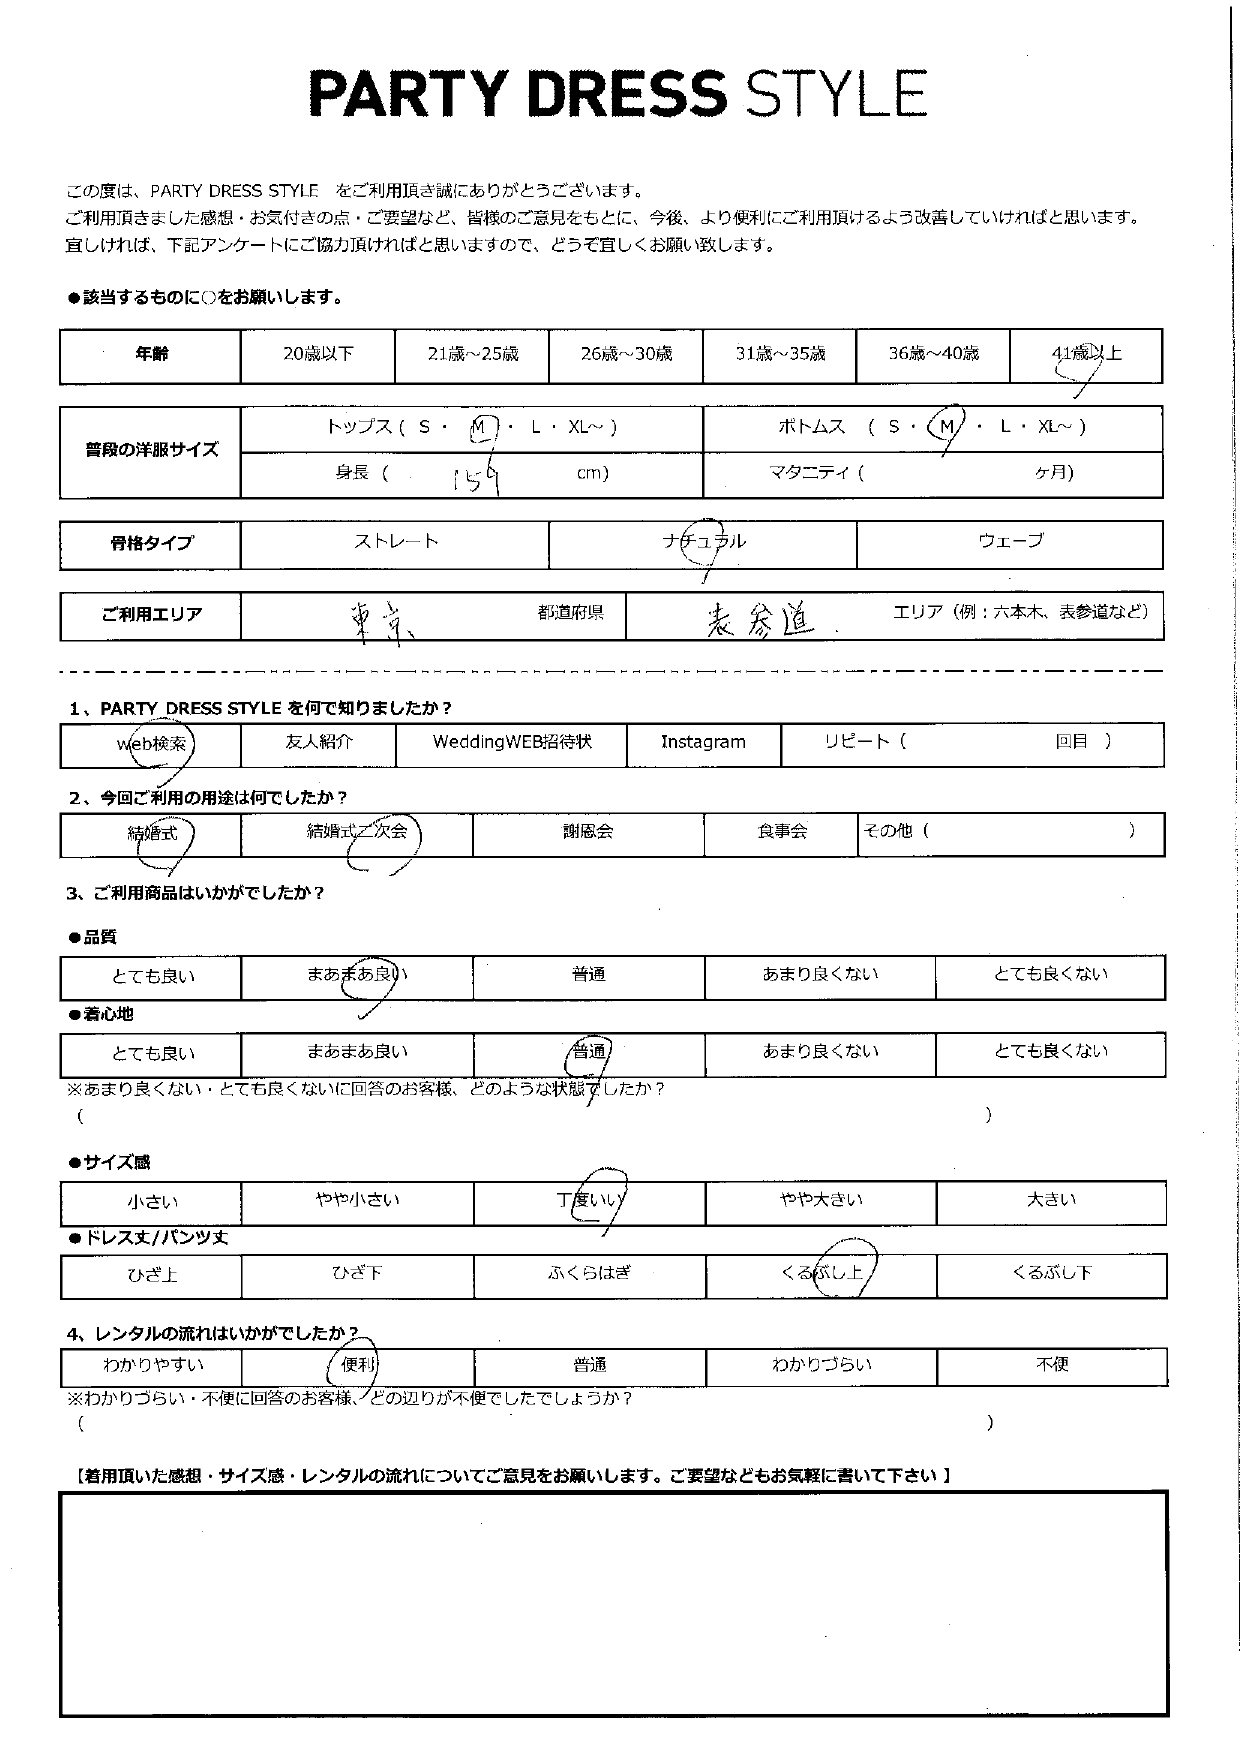 PARTY DRESS STYLE
この度は、PARTY DRESS STYLE　をご利用頂き誠にありがとうございます。
ご利用頂きました感想・お気付きの点・ご要望など、皆様のご意見をもとに、今後、より便利にご利用頂けるよう改善していければと思います。
宜しければ、下記アンケートにご協力頂ければと思いますので、どうぞ宜しくお願い致します。
●該当するものに○をお願いします。
年齢 20歳以下 21歳～25歳 26歳～30歳 31歳～35歳 36歳～40歳 41歳以上
普段の洋服サイズ
トップス ( S ・ M ・ L ・ XL～ ) ボトムス ( S ・ M ・ L ・ XL～ )
身長 ( 159 cm) マタニティ ( ヶ月)
骨格タイプ ストレート ナチュラル ウェーブ
ご利用エリア 東京 都道府県 表参道 エリア（例：六本木、表参道など）
1、PARTY DRESS STYLE を何で知りましたか？
web検索 友人紹介 WeddingWEB招待状 Instagram リピート ( 回目 )
2、今回ご利用の用途は何でしたか？
結婚式 結婚式二次会 謝恩会 食事会 その他 ( )
3、ご利用商品はいかがでしたか？
●品質
とても良い まあまあ良い 普通 あまり良くない とても良くない
●着心地
とても良い まあまあ良い 普通 あまり良くない とても良くない
※あまり良くない・とても良くないに回答のお客様、どのような状態でしたか？
( )
●サイズ感
小さい やや小さい 丁度いい やや大きい 大きい
●ドレス丈/パンツ丈
ひざ上 ひざ下 ふくらはぎ くるぶし上 くるぶし下
4、レンタルの流れはいかがでしたか？
わかりやすい 便利 普通 わかりづらい 不便
※わかりづらい・不便に回答のお客様、どの辺りが不便でしたでしょうか？
( )
【着用頂いた感想・サイズ感・レンタルの流れについてご意見をお願いします。ご要望などもお気軽に書いて下さい 】